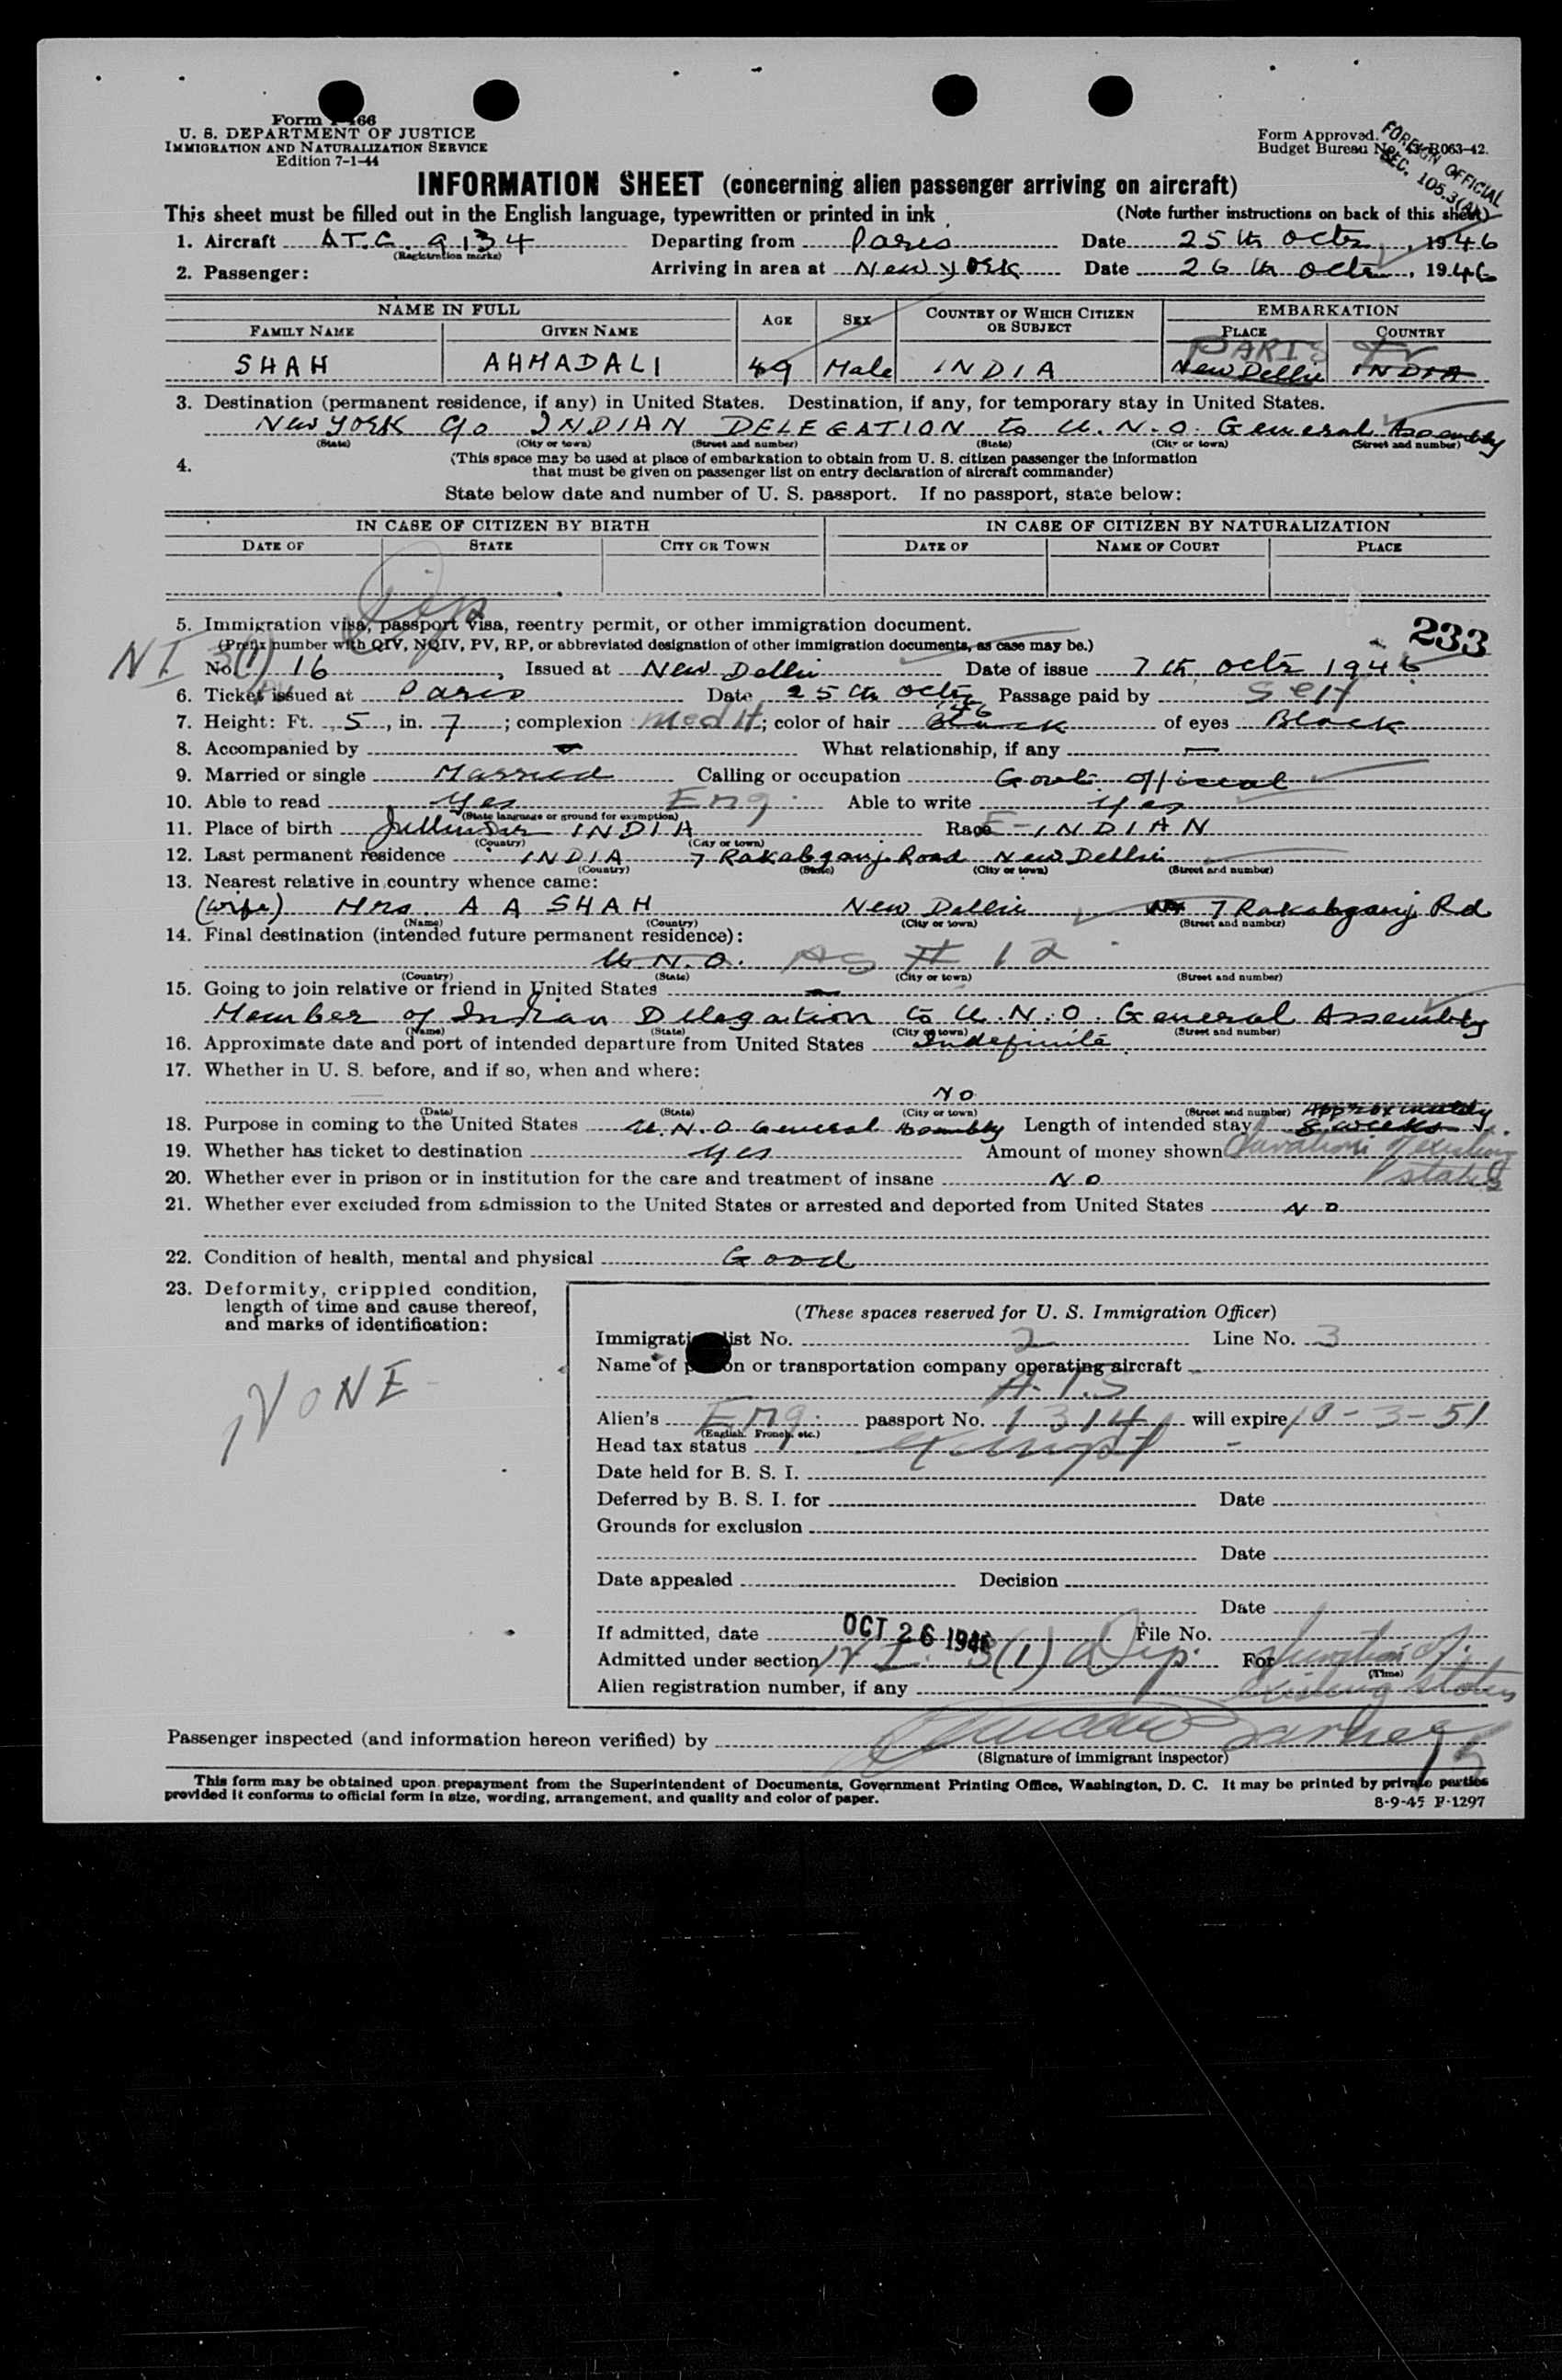 Form I-466
U. S. DEPARTMENT OF JUSTICE
IMMIGRATION AND NATURALIZATION SERVICE
Edition 7-1-44
Form Approved.
Budget Bureau No. 43-R063-42.
FOREIGN OFFICIAL
SEC. 105.3(A)
INFORMATION SHEET (concerning alien passenger arriving on aircraft)
This sheet must be filled out in the English language, typewritten or printed in ink
(Note further instructions on back of this sheet)
1. Aircraft A.T.C. 9134 Departing from Paris Date 25th Octr, 1946
(Registration marks)
2. Passenger: Arriving in area at New York Date 26th Octr, 1946
NAME IN FULL AGE SEX COUNTRY OF WHICH CITIZEN OR SUBJECT EMBARKATION
FAMILY NAME GIVEN NAME PLACE COUNTRY
PARIS Fr
SHAH AHMADALI 49 Male INDIA New Delhi INDIA
3. Destination (permanent residence, if any) in United States. Destination, if any, for temporary stay in United States.
New York c/o INDIAN DELEGATION to U.N.O. General Assembly
(State) (City or town) (Street and number) (State) (City or town) (Street and number)
4. (This space may be used at place of embarkation to obtain from U. S. citizen passenger the information
that must be given on passenger list on entry declaration of aircraft commander)
State below date and number of U. S. passport. If no passport, state below:
IN CASE OF CITIZEN BY BIRTH IN CASE OF CITIZEN BY NATURALIZATION
DATE OF STATE CITY OR TOWN DATE OF NAME OF COURT PLACE
Dip
5. Immigration visa, passport visa, reentry permit, or other immigration document.
(Prefix number with QIV, NQIV, PV, RP, or abbreviated designation of other immigration documents, as case may be.)
233
NI 3(1) No. 16, Issued at New Delhi Date of issue 7th Octr 1946
6. Ticket issued at Paris Date 25th Octr 46 Passage paid by Self
7. Height: Ft. 5, in. 7; complexion Med lt; color of hair Black of eyes Black
8. Accompanied by — What relationship, if any —
9. Married or single Married Calling or occupation Govt. official
10. Able to read Yes Eng. Able to write Yes
(State language or ground for exemption)
11. Place of birth Jullundur INDIA Race E-INDIAN
(Country) (City or town)
12. Last permanent residence INDIA 7 Rakabganj Road New Delhi
(Country) (State) (City or town) (Street and number)
13. Nearest relative in country whence came:
(Wife) Mrs. A A SHAH New Delhi 7 Rakabganj Rd
(Name) (Country) (City or town) (Street and number)
14. Final destination (intended future permanent residence):
U.N.O. As # 12
(Country) (State) (City or town) (Street and number)
15. Going to join relative or friend in United States —
Member of Indian Delegation to U.N.O. General Assembly
(Name) (State) (City or town) (Street and number)
16. Approximate date and port of intended departure from United States Indefinite
17. Whether in U. S. before, and if so, when and where:
No
(Date) (State) (City or town) (Street and number)
18. Purpose in coming to the United States U.N.O General Assembly Length of intended stay Approximately 8 weeks
19. Whether has ticket to destination Yes Amount of money shown Duration of existing status
20. Whether ever in prison or in institution for the care and treatment of insane No
21. Whether ever excluded from admission to the United States or arrested and deported from United States No
22. Condition of health, mental and physical Good
23. Deformity, crippled condition,
length of time and cause thereof,
and marks of identification:
NONE
(These spaces reserved for U. S. Immigration Officer)
Immigration list No. 2 Line No. 3
Name of person or transportation company operating aircraft
A.T.S
Alien's Eng. passport No. 1314 will expire 10-3-51
(English, French, etc.)
Head tax status exempt -
Date held for B. S. I.
Deferred by B. S. I. for Date
Grounds for exclusion
Date
Date appealed Decision
Date
If admitted, date OCT 26 1946 File No.
Admitted under section NI 3(1) Dip. For duration of
(Time)
Alien registration number, if any existing status
Passenger inspected (and information hereon verified) by
(Signature of immigrant inspector)
This form may be obtained upon prepayment from the Superintendent of Documents, Government Printing Office, Washington, D. C. It may be printed by private parties
provided it conforms to official form in size, wording, arrangement, and quality and color of paper.
8-9-45 F-1297